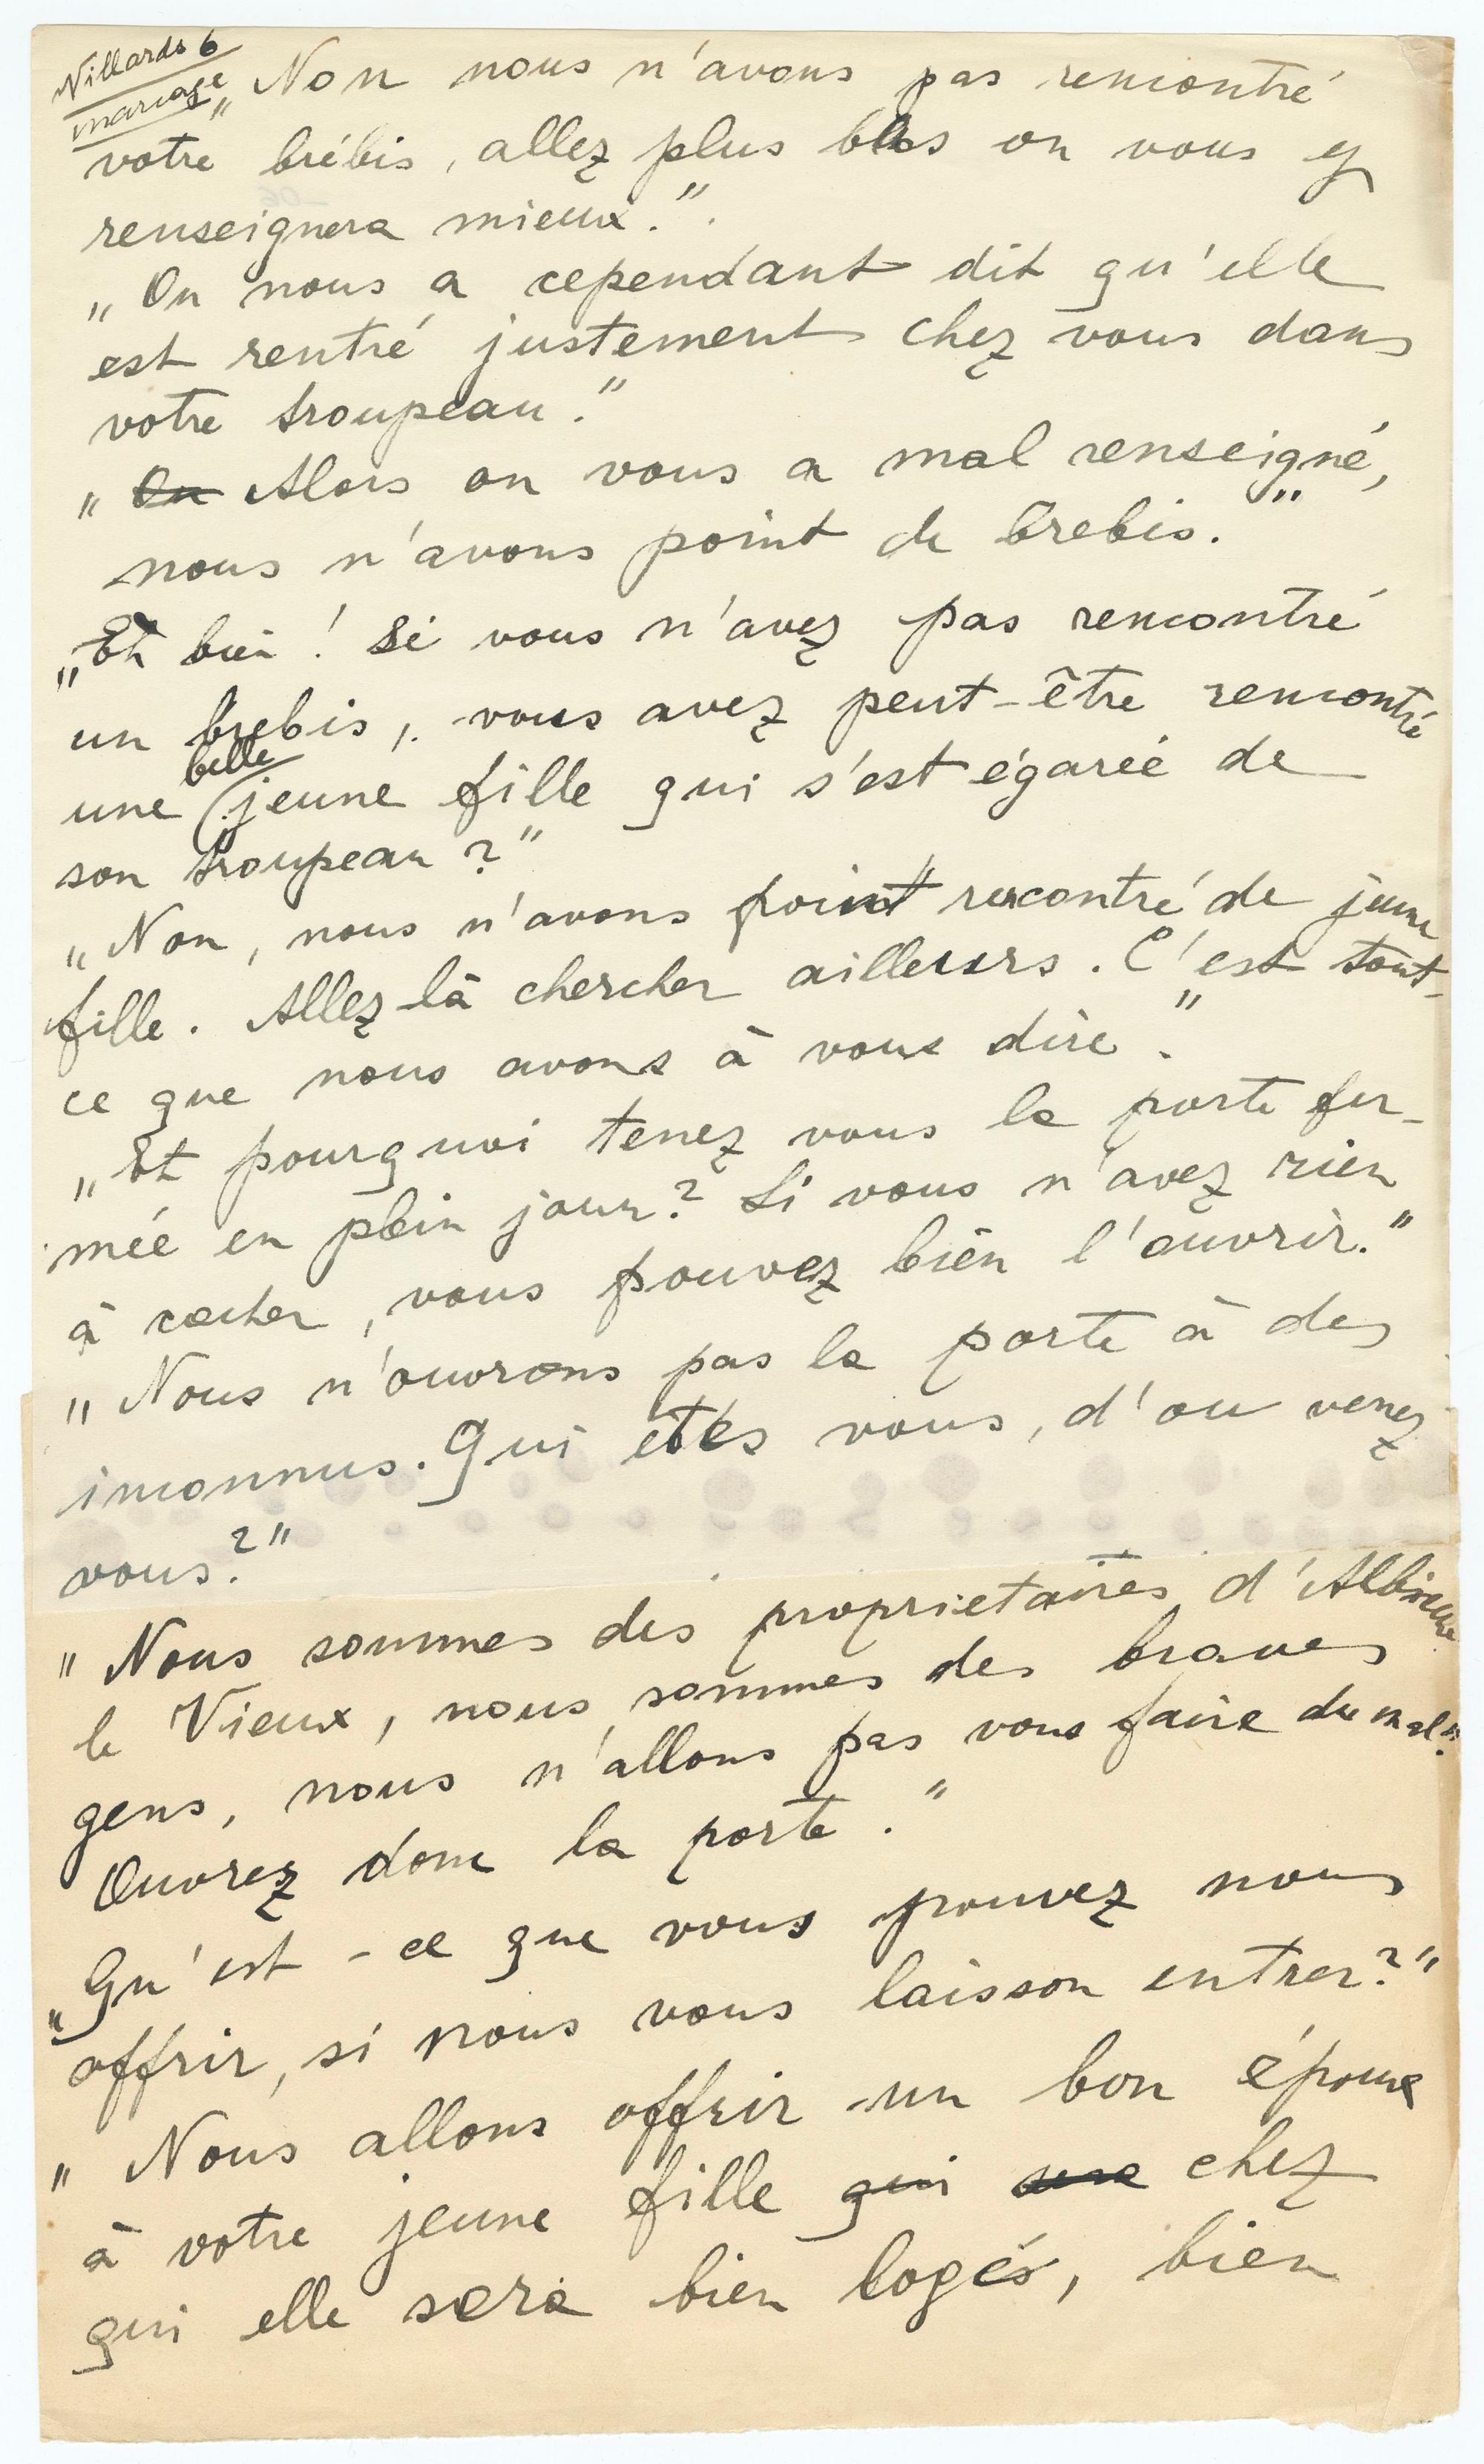 Villards 6
mariage
„Non nous n'avons pas rencontré
votre brébis, allez plus bas on vous y
renseignera mieux.”.
„On nous a cependant dit qu'elle
est rentré justement chez vous dans
votre troupeau.”
„On Alors on vous a mal renseigné,
nous n'avons point de brebis.”
„Et bien! Si vous n'avez pas rencontré
un brebis, vous avez peut-être rencontré
belle
une jeune fille qui s'est égareé de
son troupeau?”
„Non, nous n'avons point rencontré de jeune
fille. Allez là chercher ailleurs. C'est tout
ce que nous avons à vous dire.”
„Et pourquoi tenez vous la porte fer-
meé en plein jour? Si vous n'avez rien
à cacher, vous pouvez bien l'ouvrir.”
„Nous n'ouvrons pas la porte à des
inconnus. Qui etês vous, d'ou venez
vous?”
„Nous sommes des proprietaires d'Albieme
le Vieux, nous sommes des braves
gens, nous n'allons pas vous faire du mal.”
Ouvrez donc la porte.”
„Qu'est-ce que vous pouvez nous
offrir, si nous vous laisson entrer?”
„Nous allons offrir un bon époux
à votre jeune fille qui sera chez
qui elle sera bien logés, bien